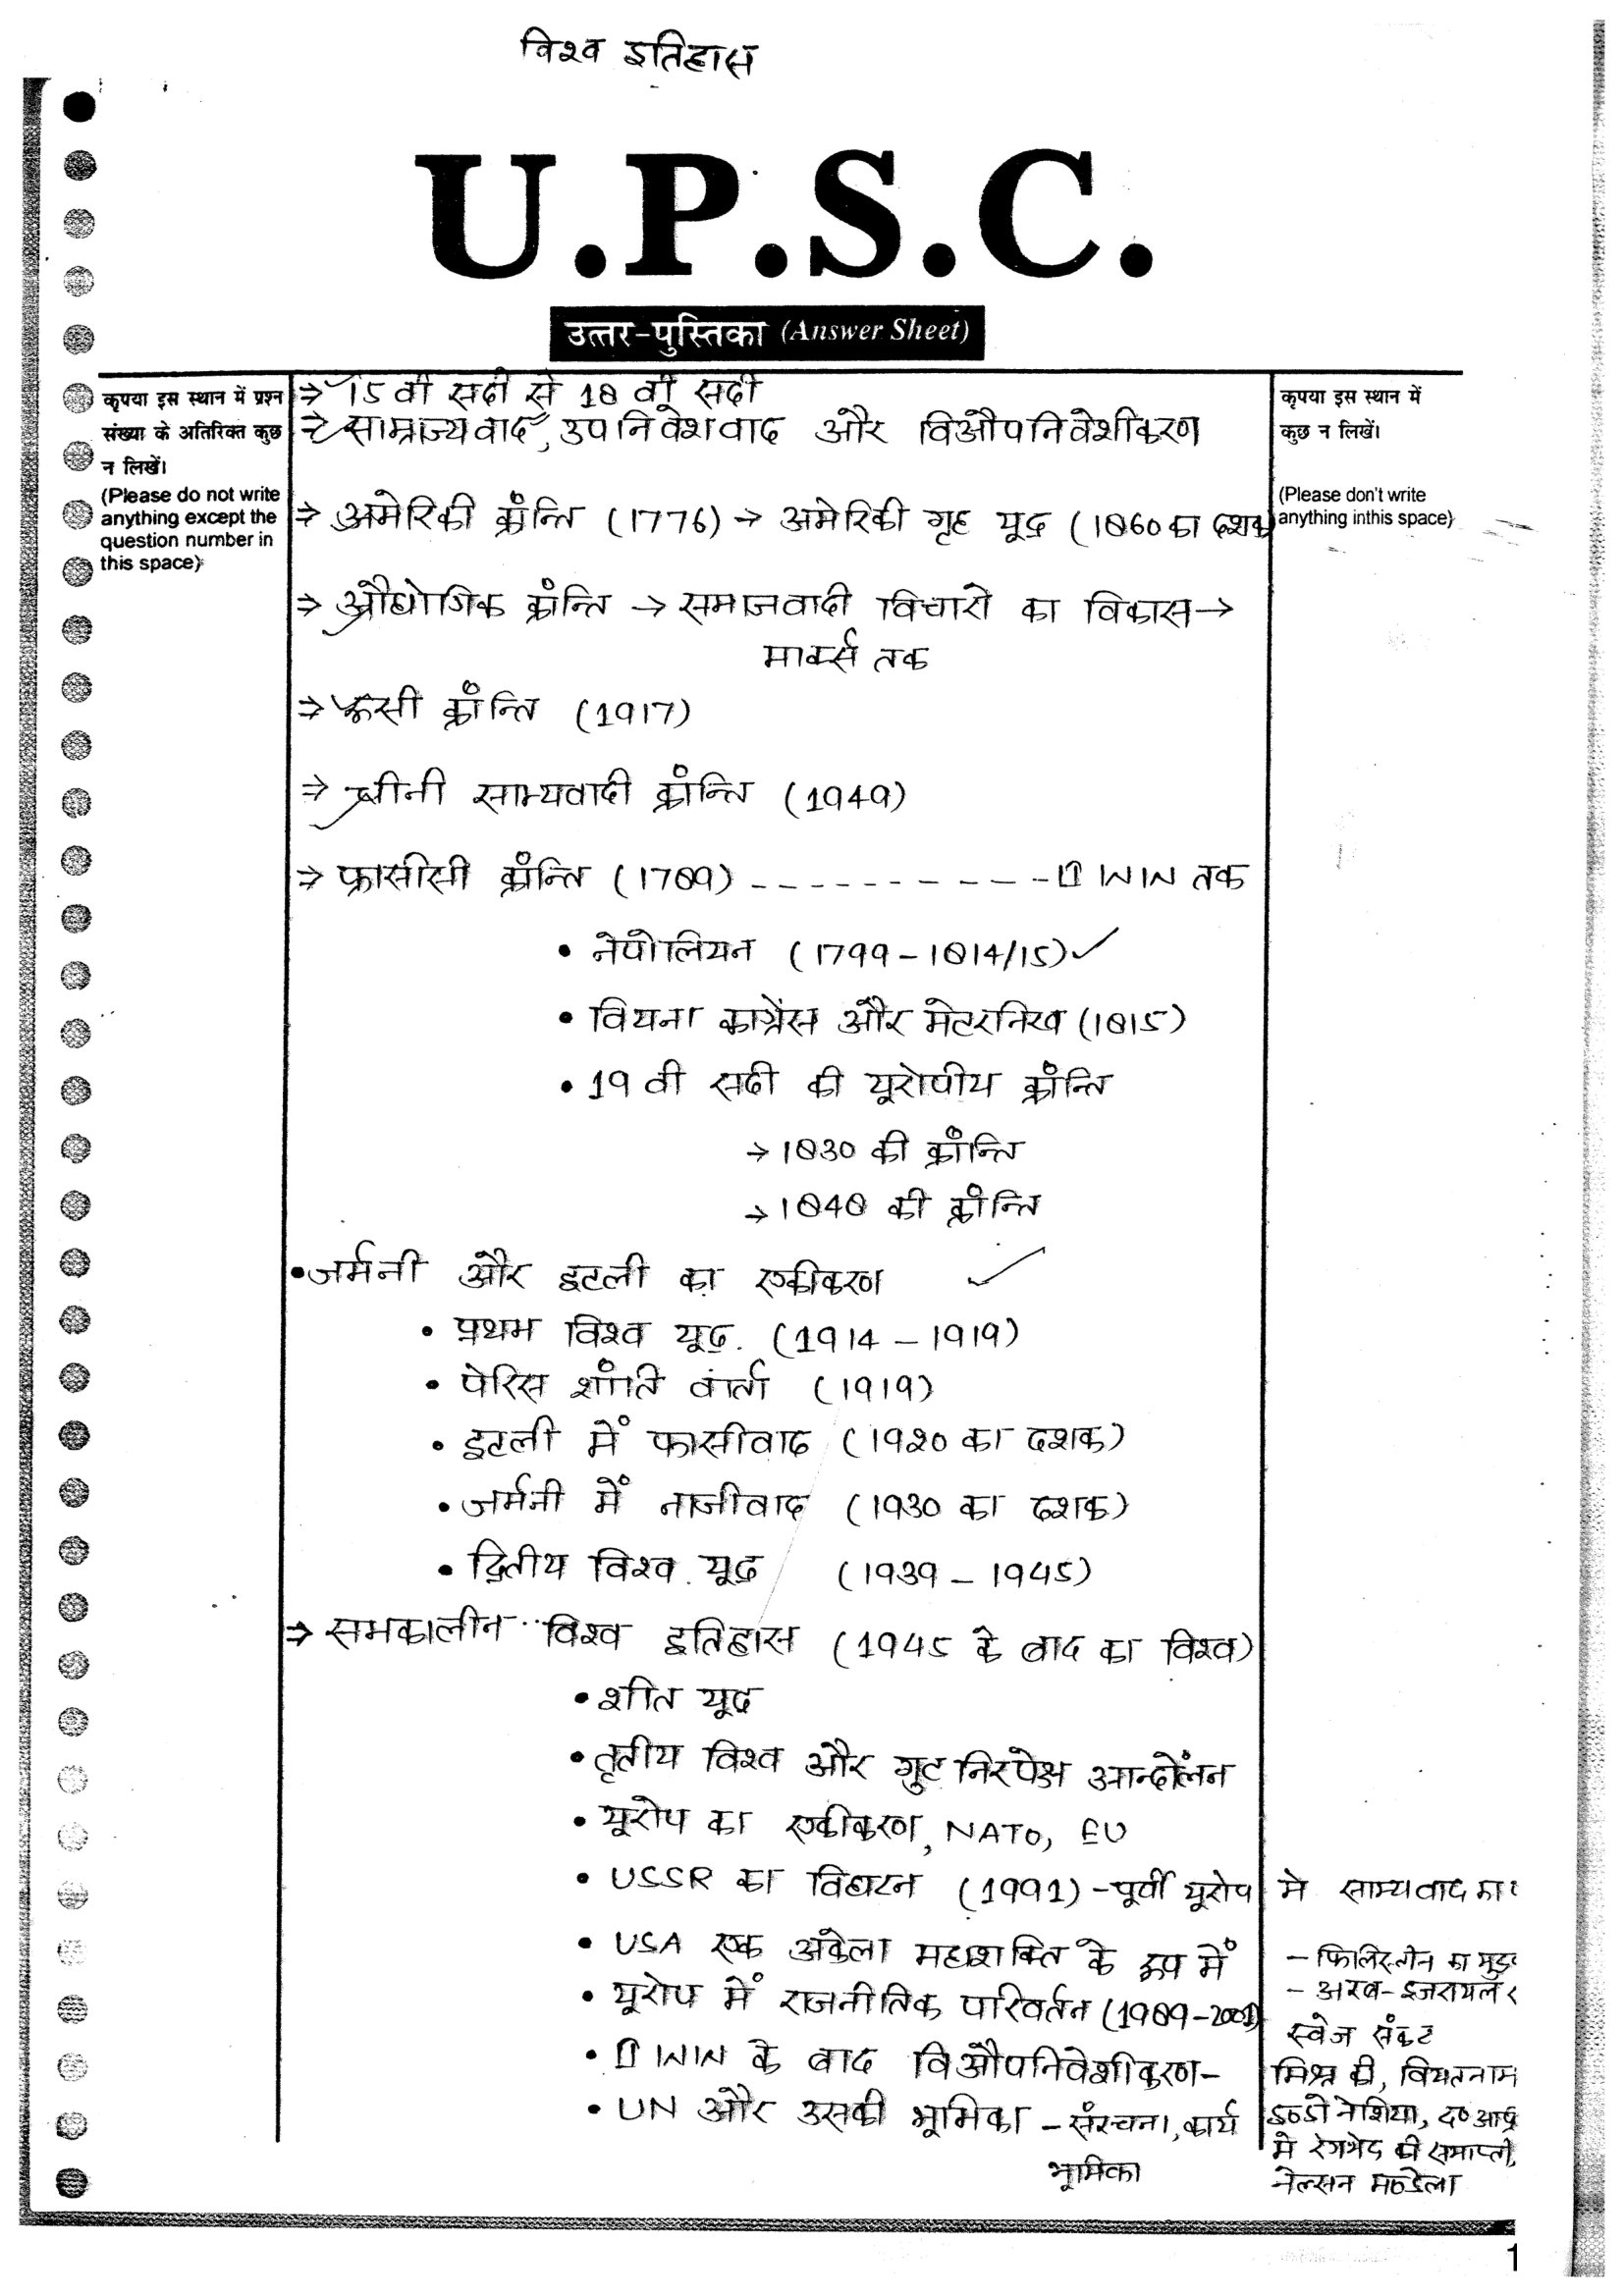 विश्व इतिहास
U.P.S.C.
उत्तर-पुस्तिका (Answer Sheet)
कृपया इस स्थान में प्रश्न
संख्या के अतिरिक्त कुछ
न लिखें।
(Please do not write
anything except the
question number in
this space)
कृपया इस स्थान में
कुछ न लिखें।
(Please don't write
anything inthis space)
⇒ 15 वी सदी से 18 वी सदी
⇒ साम्राज्यवाद, उपनिवेशवाद और विऔपनिवेशीकरण
⇒ अमेरिकी क्रांन्ति (1776) → अमेरिकी गृह यूद्ध (1860 का दशक)
⇒ औद्योगिक क्रांन्ति → समाजवादी विचारो का विकास →
मार्क्स तक
⇒ रूसी क्रांन्ति (1917)
⇒ चीनी साम्यवादी क्रांन्ति (1949)
⇒ फ्रासीसी क्रांन्ति (1789) - - - - - - - - - - - II WIN तक
• नेपोलियन (1799 - 1814/15) ✓
• वियना काग्रेंस और मेटरनिख (1815)
• 19 वी सदी की यूरोपीय क्रांन्ति
→ 1830 की क्रांन्ति
→ 1848 की क्रांन्ति
• जर्मनी और इटली का एकीकरण ✓
• प्रथम विश्व यूद्ध. (1914 - 1919)
• पेरिस शांति वार्ता (1919)
• इटली में फासीवाद (1920 का दशक)
• जर्मनी में नाजीवाद (1930 का दशक)
• द्वितीय विश्व यूद्ध (1939 - 1945)
⇒ समकालीन विश्व इतिहास (1945 के बाद का विश्व)
• शीत यूद्ध
• तृतीय विश्व और गुट निरपेक्ष आन्दोलन
• यूरोप का एकीकरण, NATO, EU
• USSR का विघटन (1991) - पूर्वी यूरोप मे साम्यवाद का
• USA एक अकेला महाशक्ति के रूप में
• यूरोप में राजनीतिक परिवर्तन (1989-2001)
• II WIN के बाद विऔपनिवेशीकरण-
• UN और उसकी भूमिका - संरचना, कार्य
भूमिका
- फिलिस्तीन का
- अरब - इजरायल
स्वेज संकट
मिश्र की, वियतनाम
इण्डोनेशिया, द०
मे रंगभेद की समाप्ती,
नेल्सन मण्डेला
1